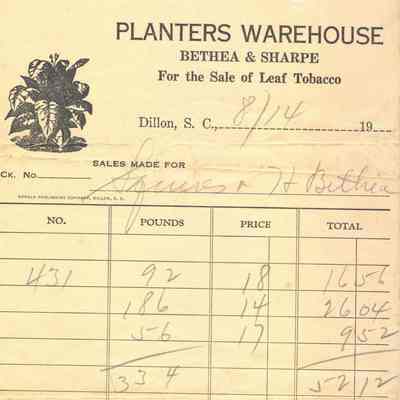 PLANTERS WAREHOUSE
BETHEA & SHARPE
For the Sale of Leaf Tobacco
Dillon, S. C., 8/14 19
SALES MADE FOR
CK. No. Squires & H Bethea
HERALD PUBLISHING COMPANY, DILLON, S. C.
NO. POUNDS PRICE TOTAL
431 92 18 16 56
186 14 26 04
56 17 9 52
334 52 12